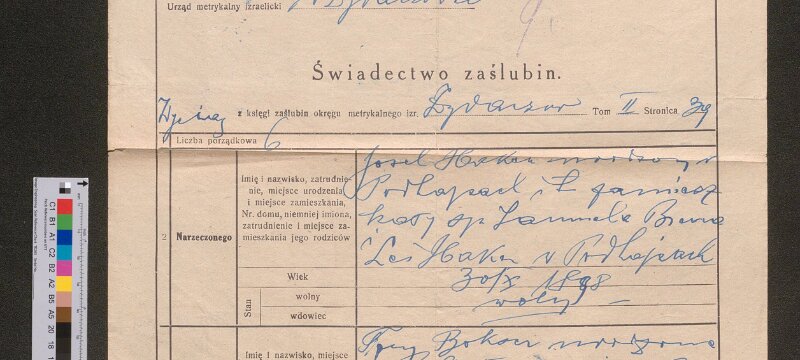 Urząd metrykalny izraelicki
Świadectwo zaślubin.
Wyciąg z księgi zaślubin okręgu metrykalnego izr. Żydaczów Tom II Stronica 39
Liczba porządkowa 6
2 Narzeczonego
Imię i nazwisko, zatrudnie-
nie, miejsce urodzenia
i miejsce zamieszkania,
Nr. domu, niemniej imiona,
zatrudnienie i miejsce za-
mieszkania jego rodziców
Josef Haker urodzony w
Podhajcach i t. zamiesz
kały sp Samuela
i Lei Haker w Podhajcach
Wiek
30/X 1898
Stan
wolny
wdowiec
wolny
Imię i nazwisko, miejsce
urodzona
C1 B1 A1 C2 B2 A2 B5 A5 20 18